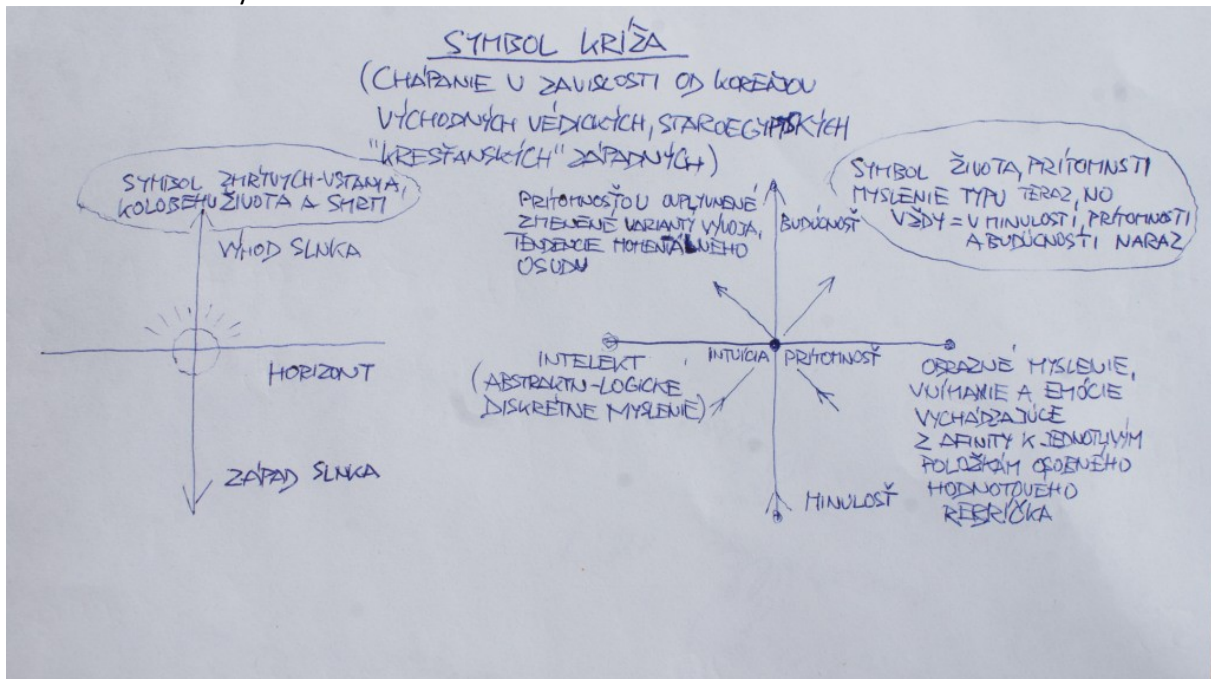 SYMBOL KRÍŽA
(CHÁPANIE V ZÁVISLOSTI OD KOREŇOV
VÝCHODNÝCH VÉDICKÝCH, STAROEGYPTSKÝCH
"KRESŤANSKÝCH" ZÁPADNÝCH)
SYMBOL ZMŔTVYCH-VSTANIA,
KOLOBEHU ŽIVOTA A SMRTI
VÝHOD SLNKA
HORIZONT
ZÁPAD SLNKA
PRÍTOMNOSŤOU OVPLYVNENÉ
ZMENENÉ VARIANTY VÝVOJA,
TENDENCIE MOMENTÁLNEHO
OSUDU
BUDÚCNOSŤ
SYMBOL ŽIVOTA, PRÍTOMNSTI
MYSLENIE TYPU TERAZ, NO
VŽDY = V MINULOSTI, PRÍTOMNOSTI
A BUDÚCNOSTI NARAZ
INTELEKT
(ABSTRAKTN-LOGICKÉ
DISKRÉTNE MYSLENIE)
INTUÍCIA
PRÍTOMNOSŤ
OBRAZNÉ MYSLENIE,
VNÍMANIE A EMÓCIE
VYCHÁDZAJÚCE
Z AFINITY K JEDNOTLIVÝM
POLOŽKÁM OSOBNÉHO
HODNOTOVÉHO
REBRÍČKA
MINULOSŤ